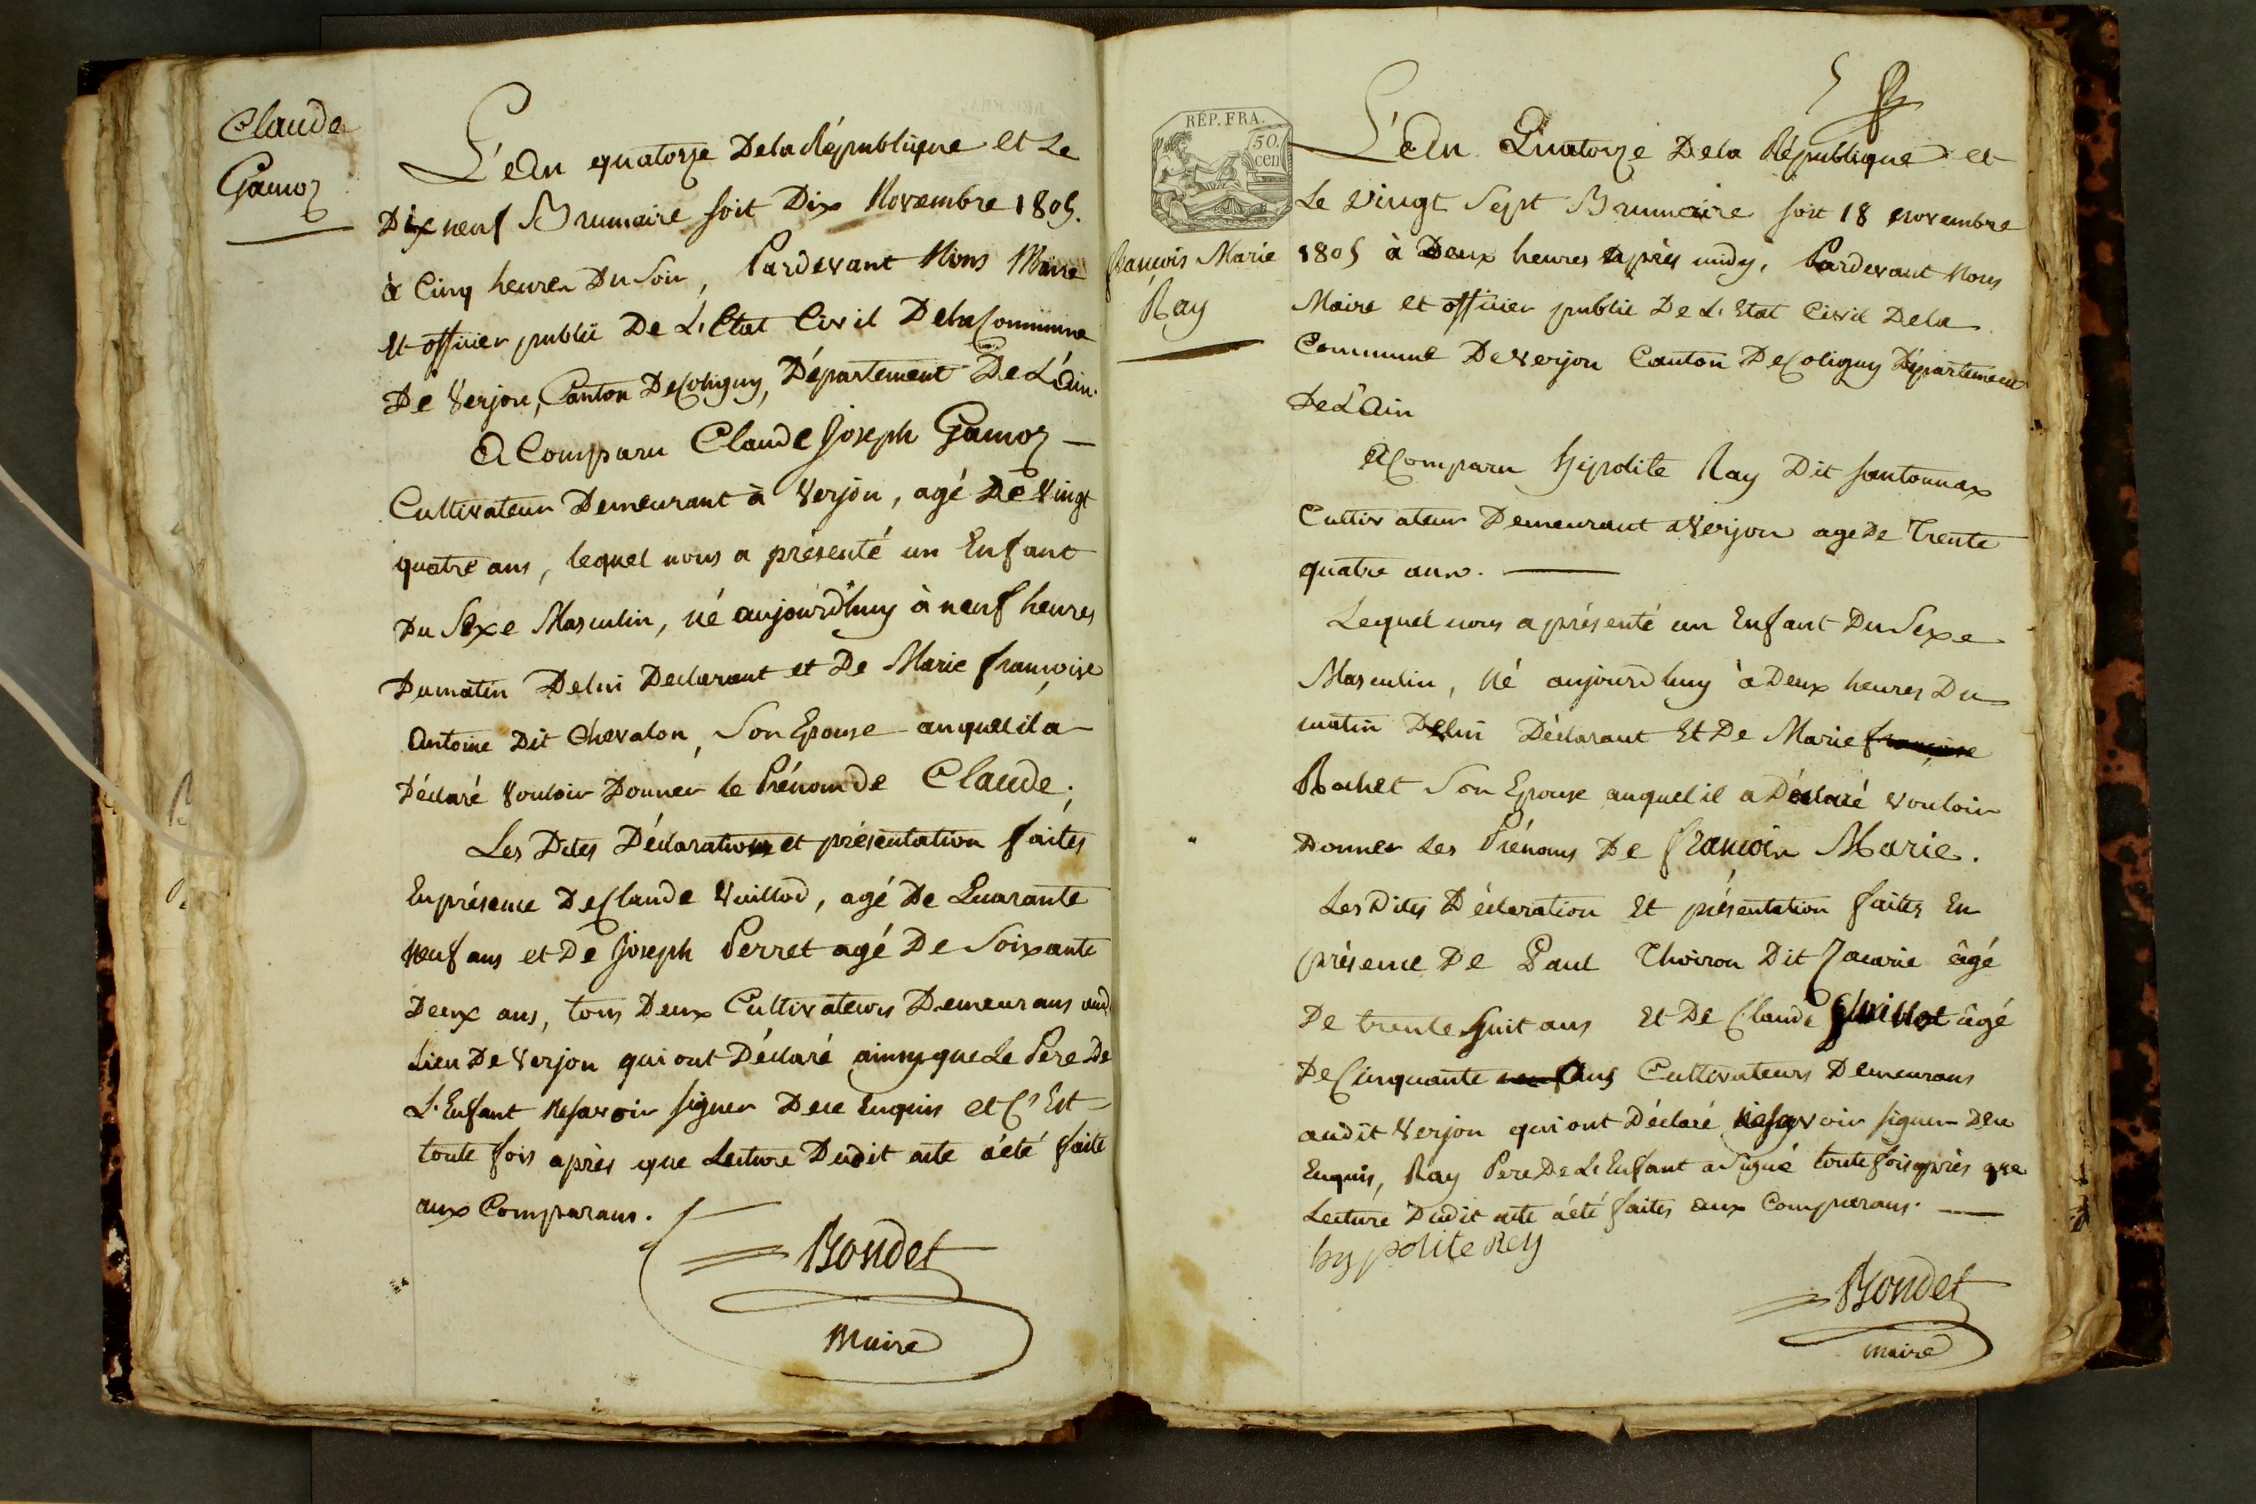 Claude
Gamoz
L'an quatorze De la République et Le
Dix neuf Brumaire soit Dix Novembre 1805.
à Cinq heures Du Soir, Pardevant Nous Maire
et officier public De L'Etat Civil De la Commune
De Verjon, Canton De Coligny, Département De L'Ain.
A Comparu Claude Joseph Gamoz
Cultivateur Demeurant à Verjon, agé De Vingt
quatre ans, lequel nous a présenté un Enfant
Du Sexe Masculin, né aujourd'huy à neuf heures
Du matin De lui Declarant et De Marie françoise
Antoine Dit Chevalon, Son Epouse auquel il a
Déclaré Vouloir Donner le Prénom de Claude;
Les Dites Déclaration et présentation faites
En présence De Claude Vuillod, agé De Quarante
Neuf ans et De Joseph Perret agé De Soixante
Deux ans, tous Deux Cultivateurs Demeurans aud
Lieu De Verjon qui ont Déclaré ainsy que Le Pere De
L'Enfant Ne savoir signer De ce Enquis et C'Est
toute fois après que Lecture Dudit acte a été faite
aux Comparans.
Bondet
Maire
5
RÉP. FRA.
50.
cen
françois Marie
Ray
L'An Quatorze De la République et
Le Vingt Sept Brumaire soit 18 novembre
1805 à Deux heures après midy, Pardevant Nous
Maire et officier public De L'Etat Civil De la
Commune De Verjon Canton De Coligny Département
De L'Ain
A Comparu Hipolite Ray Dit santonnax
Cultivateur Demeurant a Verjon age De Trente
quatre ans.
Lequel nous a présenté un Enfant Du Sexe
Masculin, Né aujourdhuy à Deux heures Du
matin De lui Déclarant Et De Marie françoise
Rochet Son Epouse auquel il a Déclaré vouloir
Donner Les Prénoms De françois Marie.
Les Dites Déclaration Et présentation faites En
présence De Paul Thoiron Dit Zacarie âgé
De trente huit ans Et De Claude âgé
De Cinquante ans Cultivateurs Demeurans
audit Verjon qui ont Déclaré ne savoir signer De ce
Enquis, Ray Pere De L'Enfant a Signé toute fois après que
Lecture Dudit acte a été faites aux Comparans.
hyppolite Rey
Bondet
maire